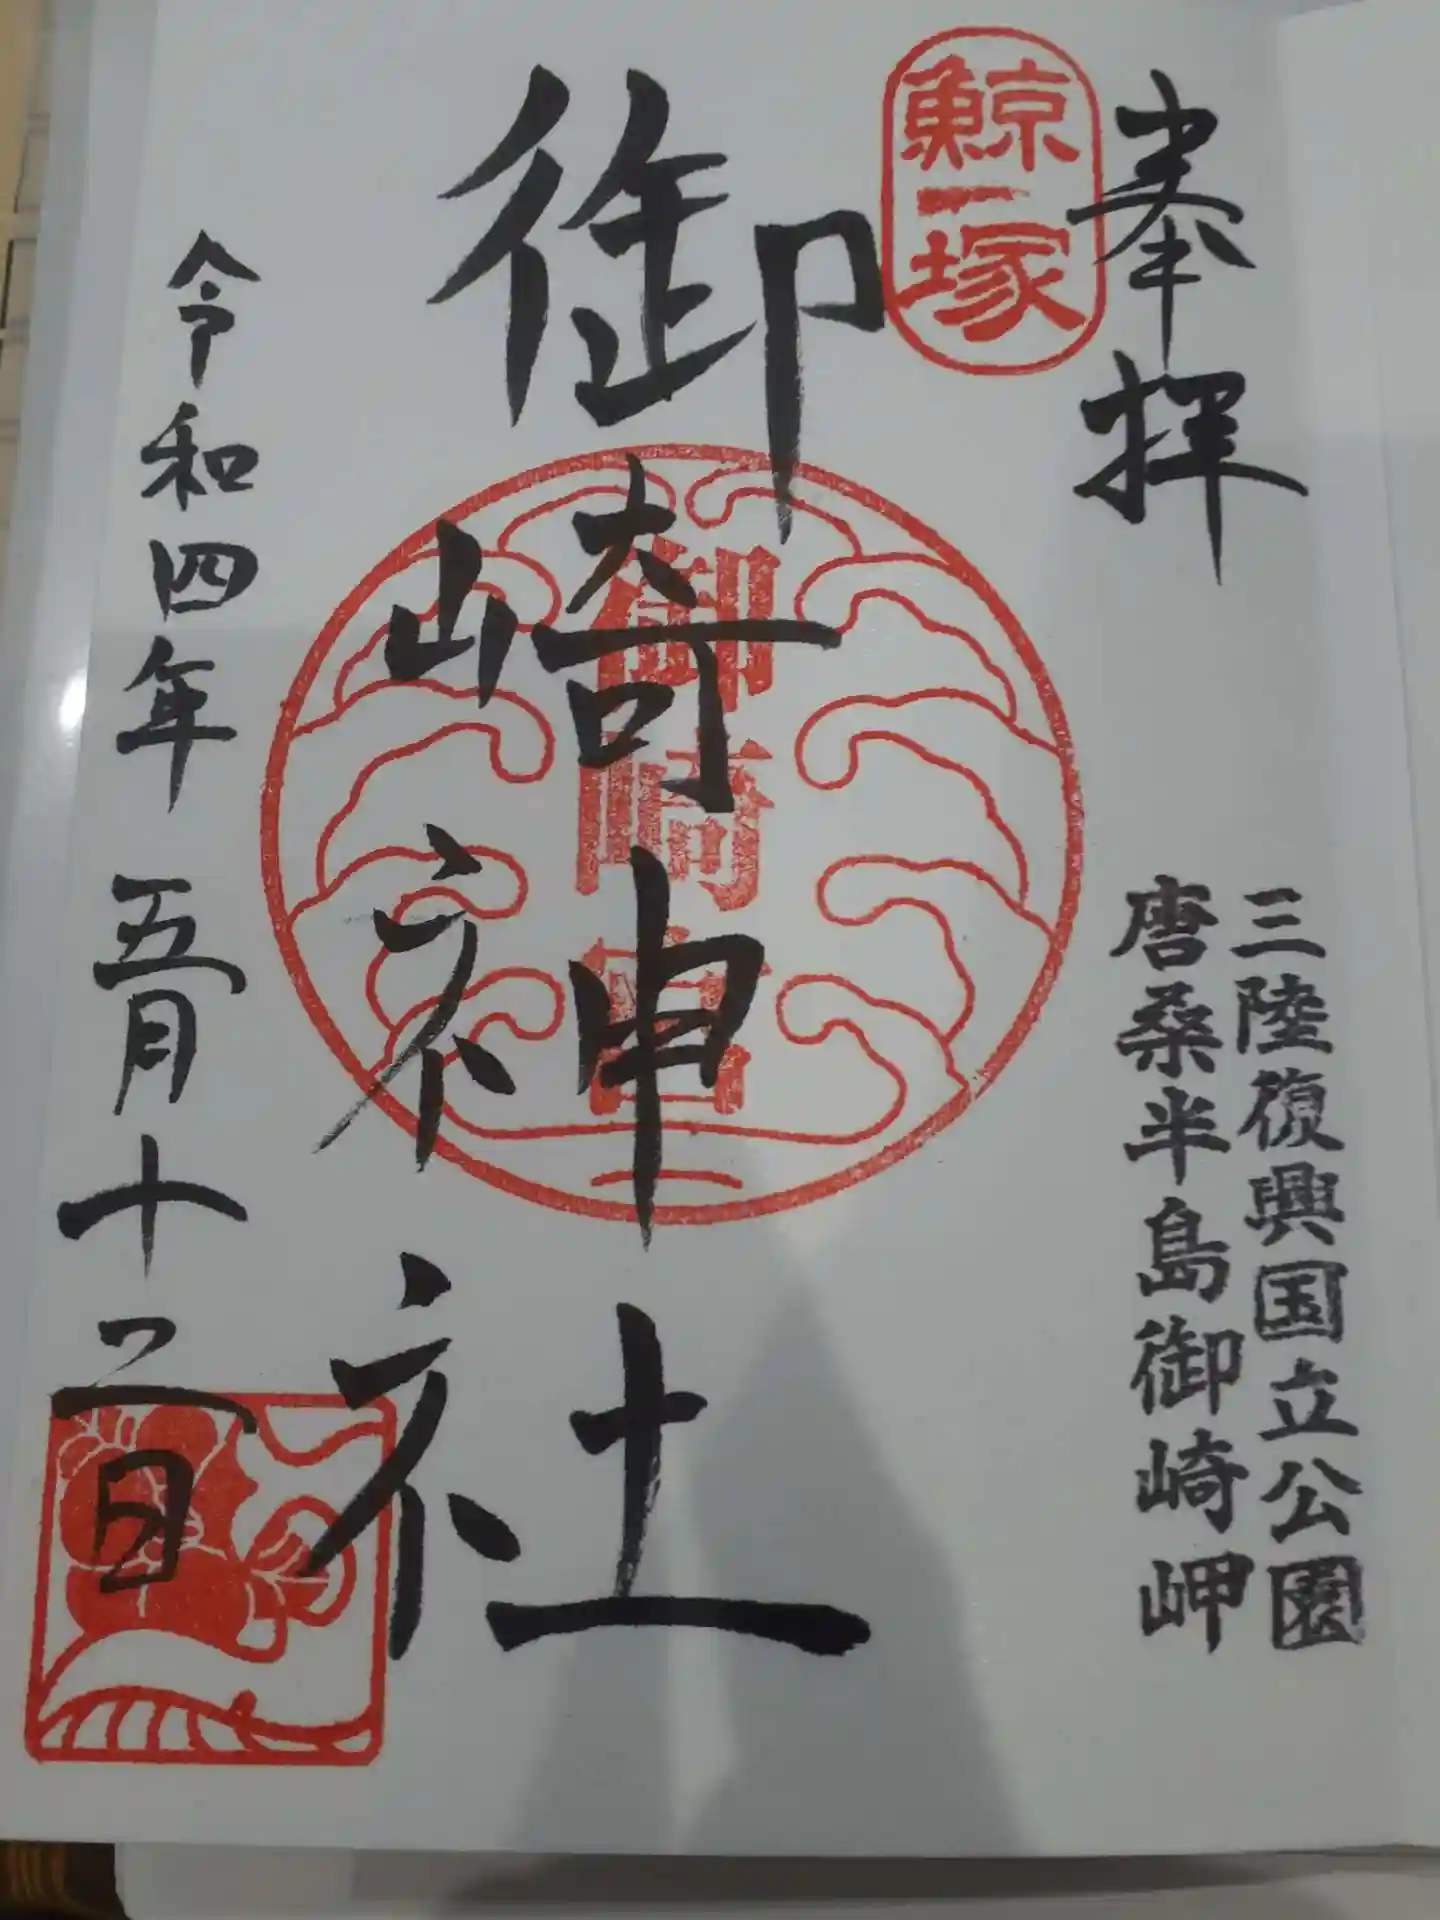 奉拝
三陸復興国立公園
唐桑半島御崎岬
鯨塚
御崎神社
御崎宮
令和四年五月十二日